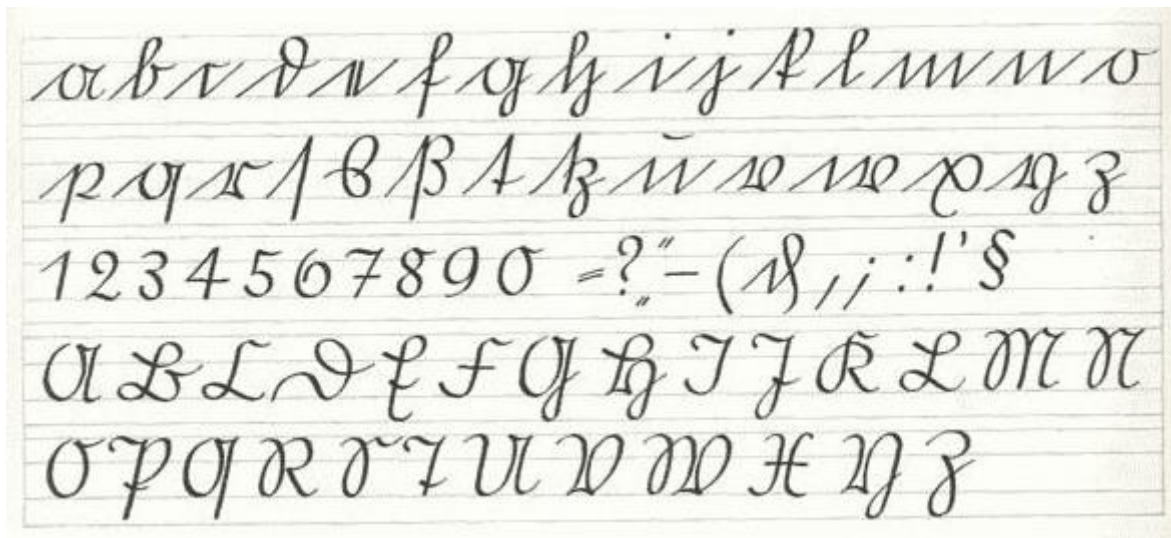 a b c d e f g h i j k l m n o
p q r ſ s ß t tz u v w x y z
1 2 3 4 5 6 7 8 9 0 = ? „ “ – ( & , ; : ! ' §
A B C D E F G H I J K L M N
O P Q R S T U V W X Y Z